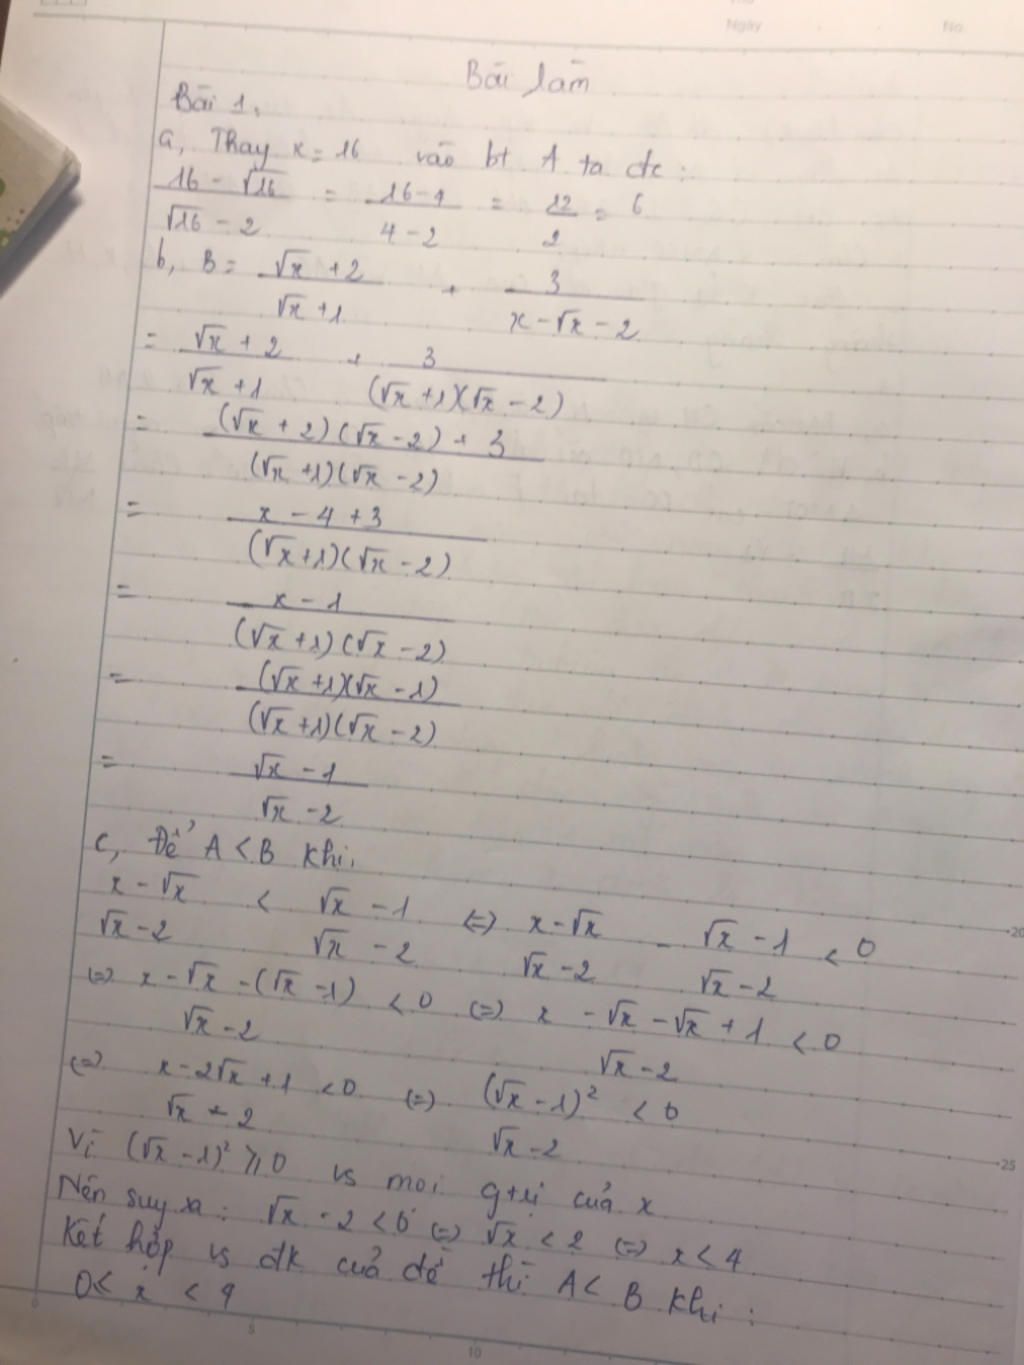 Ngày
No.
Bài làm
Bài 1,
a, Thay x = 16 vào bt A ta đc :
(16 - √16)/(√16 - 2) = (16 - 4)/(4 - 2) = 12/2 = 6
b, B = (√x + 2)/(√x + 1) + 3/(x - √x - 2)
= (√x + 2)/(√x + 1) + 3/((√x + 1)(√x - 2))
= ((√x + 2)(√x - 2) + 3)/((√x + 1)(√x - 2))
= (x - 4 + 3)/((√x + 1)(√x - 2))
= (x - 1)/((√x + 1)(√x - 2))
= ((√x + 1)(√x - 1))/((√x + 1)(√x - 2))
= (√x - 1)/(√x - 2)
c, Để A < B khi,
(x - √x)/(√x - 2) < (√x - 1)/(√x - 2) (=) (x - √x)/(√x - 2) - (√x - 1)/(√x - 2) < 0
(=) (x - √x - (√x - 1))/(√x - 2) < 0 (=) (x - √x - √x + 1)/(√x - 2) < 0
(=) (x - 2√x + 1)/(√x - 2) < 0 (=) (√x - 1)²/(√x - 2) < 0
Vì (√x - 1)² ⩾ 0 vs mọi gtrị của x
Nên suy ra : √x - 2 < 0 (=) √x < 2 (=) x < 4
Kết hợp vs đk của đề thì A < B khi :
0 ≤ x < 4
20
25
5
10